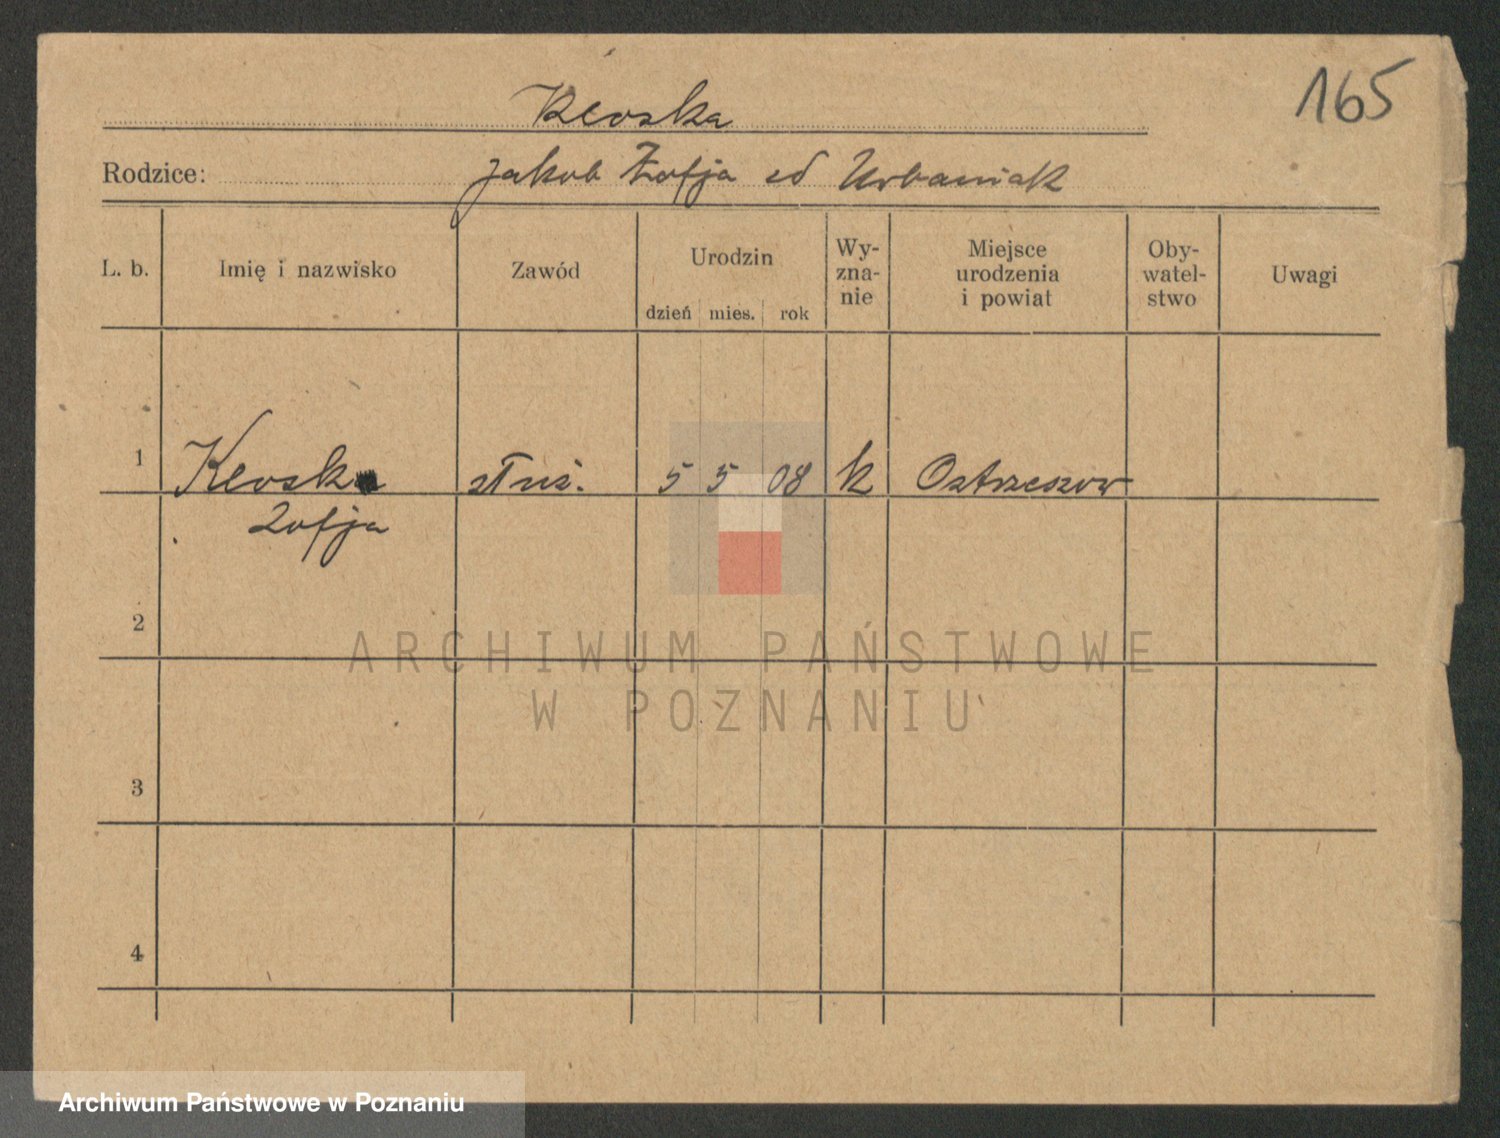 165
Kloska
Rodzice: Jakob Zofja ed Urbaniak
L. b. Imię i nazwisko Zawód Urodzin dzień mies. rok Wy-zna-nie Miejsce urodzenia i powiat Oby-watel-stwo Uwagi
1 Kloska służ. 5 5 08 k Ostrzeszow
Zofja
2
3
4
ARCHIWUM PAŃSTWOWE
W POZNANIU
Archiwum Państwowe w Poznaniu